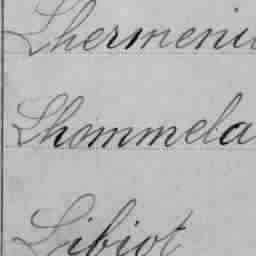 Lhermeni
Lhommela
Libiot